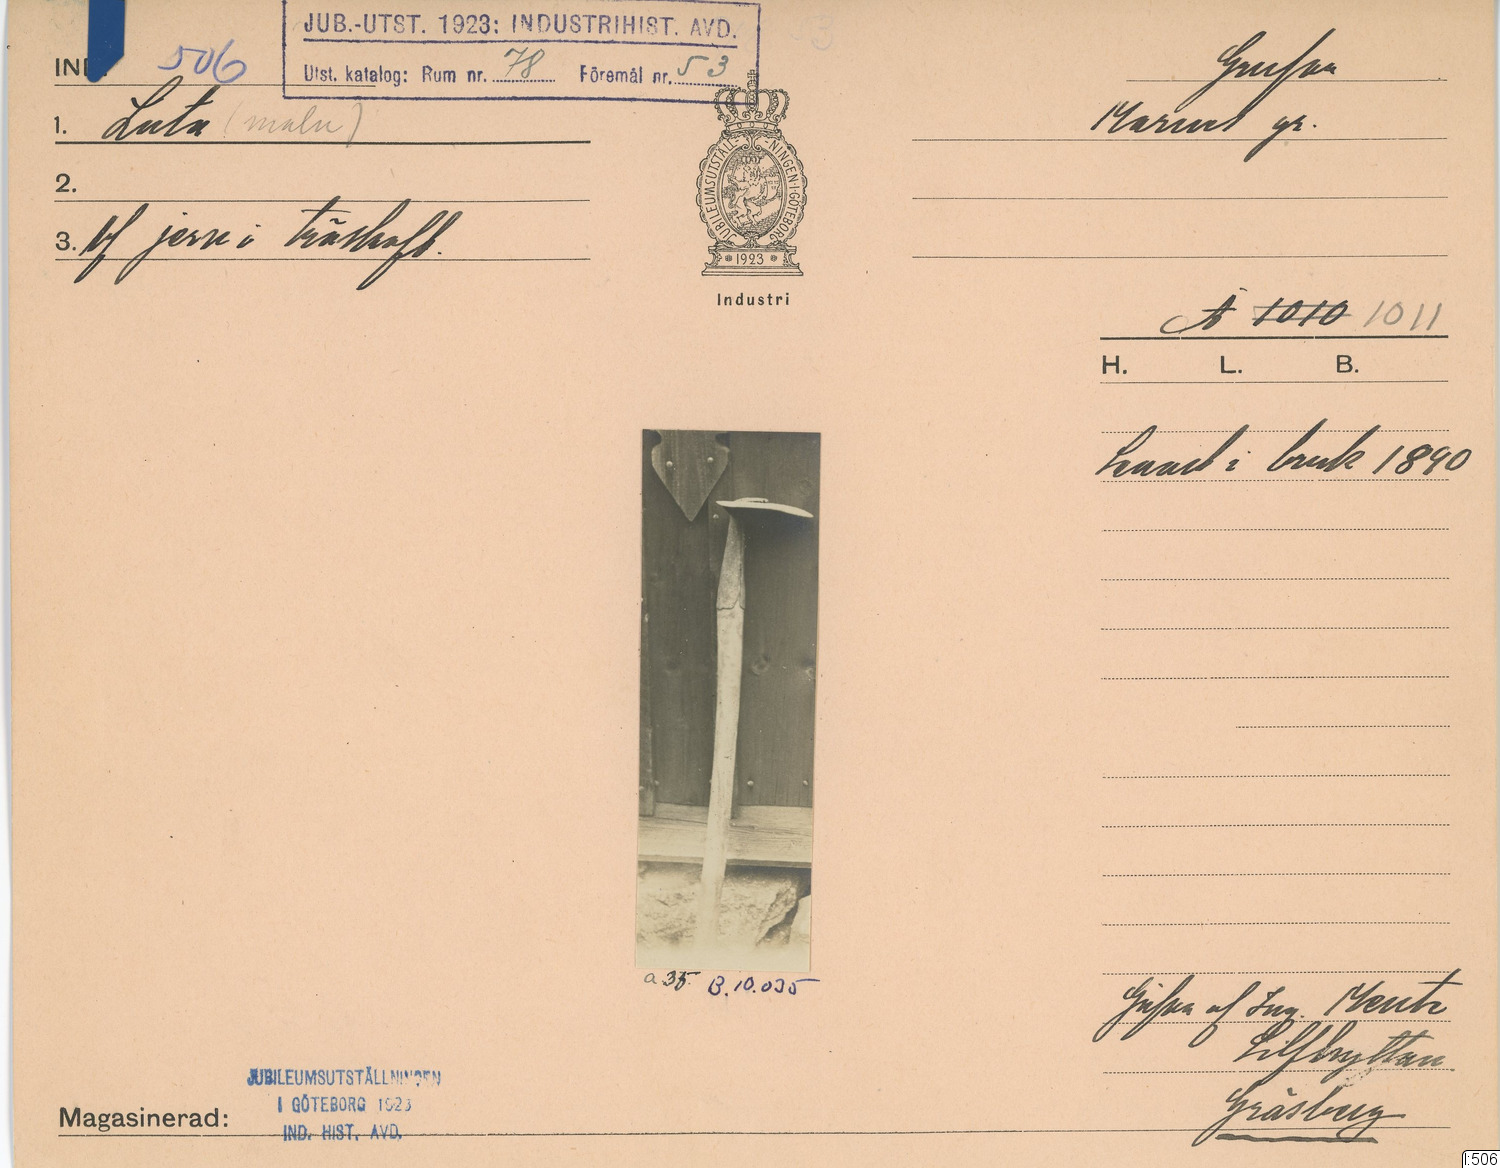 JUB.-UTST. 1923: INDUSTRIHIST. AVD.
Utst. katalog: Rum nr. 78 Föremål nr. 53
IND. 506
1. Luta (malm)
2.
3. Af jern i träskaft.
JUBILEUMSUTSTÄLLNINGEN I GÖTEBORG
1923
Industri
Grufva
gr.
Å 1010 1011
H. L. B.
i bruk 1890
a.35. B.10.035
Gåfva af Ing.
Silfhyttan
Gräsberg
JUBILEUMSUTSTÄLLNINGEN
I GÖTEBORG 1923
IND. HIST. AVD.
Magasinerad:
I:506